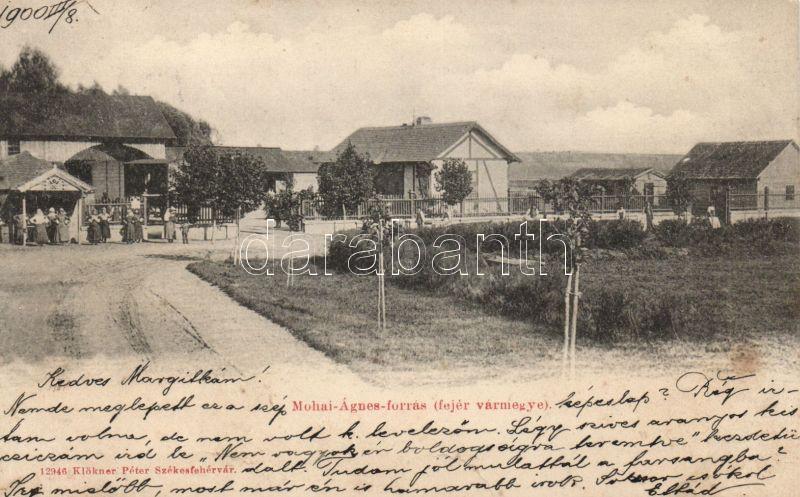 1900 III/8.
darabanth
Kedves Margitkám!
Nemde meglepett ez a szép Mohai-Ágnes-forrás (fejér vármegye). képeslap? Rég ir-
tam volna, de nem volt k. levelezőm. Légy szives aranyos kis
cziczám ird le "Nem vagyok én boldogságra teremtve" kezdetü
12946 Klökner Péter Székesfehérvár. dalt. Tudom jól mulattál a farsangba?
Irj mielőbb, most már én is hamarabb irok. Sokszor csókol